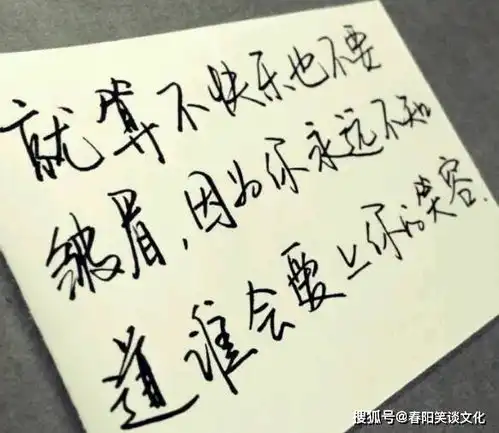 就算不快乐也不要
皱眉，因为你永远不知
道谁会爱上你的笑容.
搜狐号@春阳笑谈文化